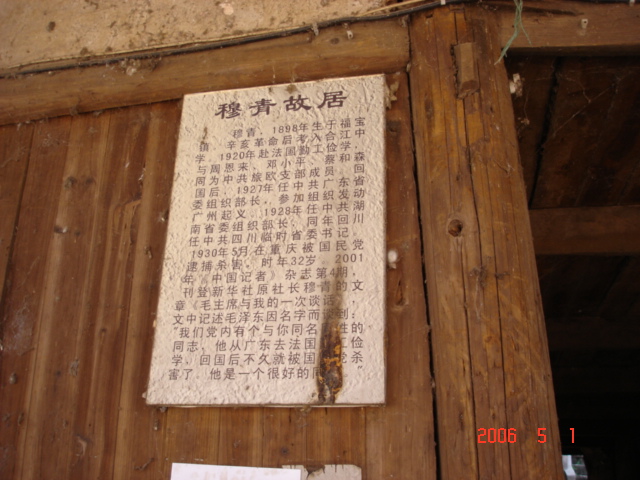 穆青故居
穆青，1898年生于福宝
镇，辛亥革命后考入合江中
学，1920年赴法国勤工俭学，
与周恩来、邓小平、蔡和森
同为中共旅欧支部成员，回
国后，1927年任中共广东省
委组织部长，参加组织发动
广州起义。1928年任中共湖
南省委组织部长，同年回川
任中共四川临时省委书记，
1930年5月在重庆被国民党
逮捕杀害，时年32岁。2001
年《中国记者》杂志第4期，
刊登新华社原社长穆青的文
章《毛主席与我的一次谈话》，
文中记述毛泽东因名字而谈到：
"我们党内有个与你同名 姓的
同志，他从广东去法国 工俭
学，回国后不久就被国 党杀
害了，他是一个很好的同 "
2006 5 1